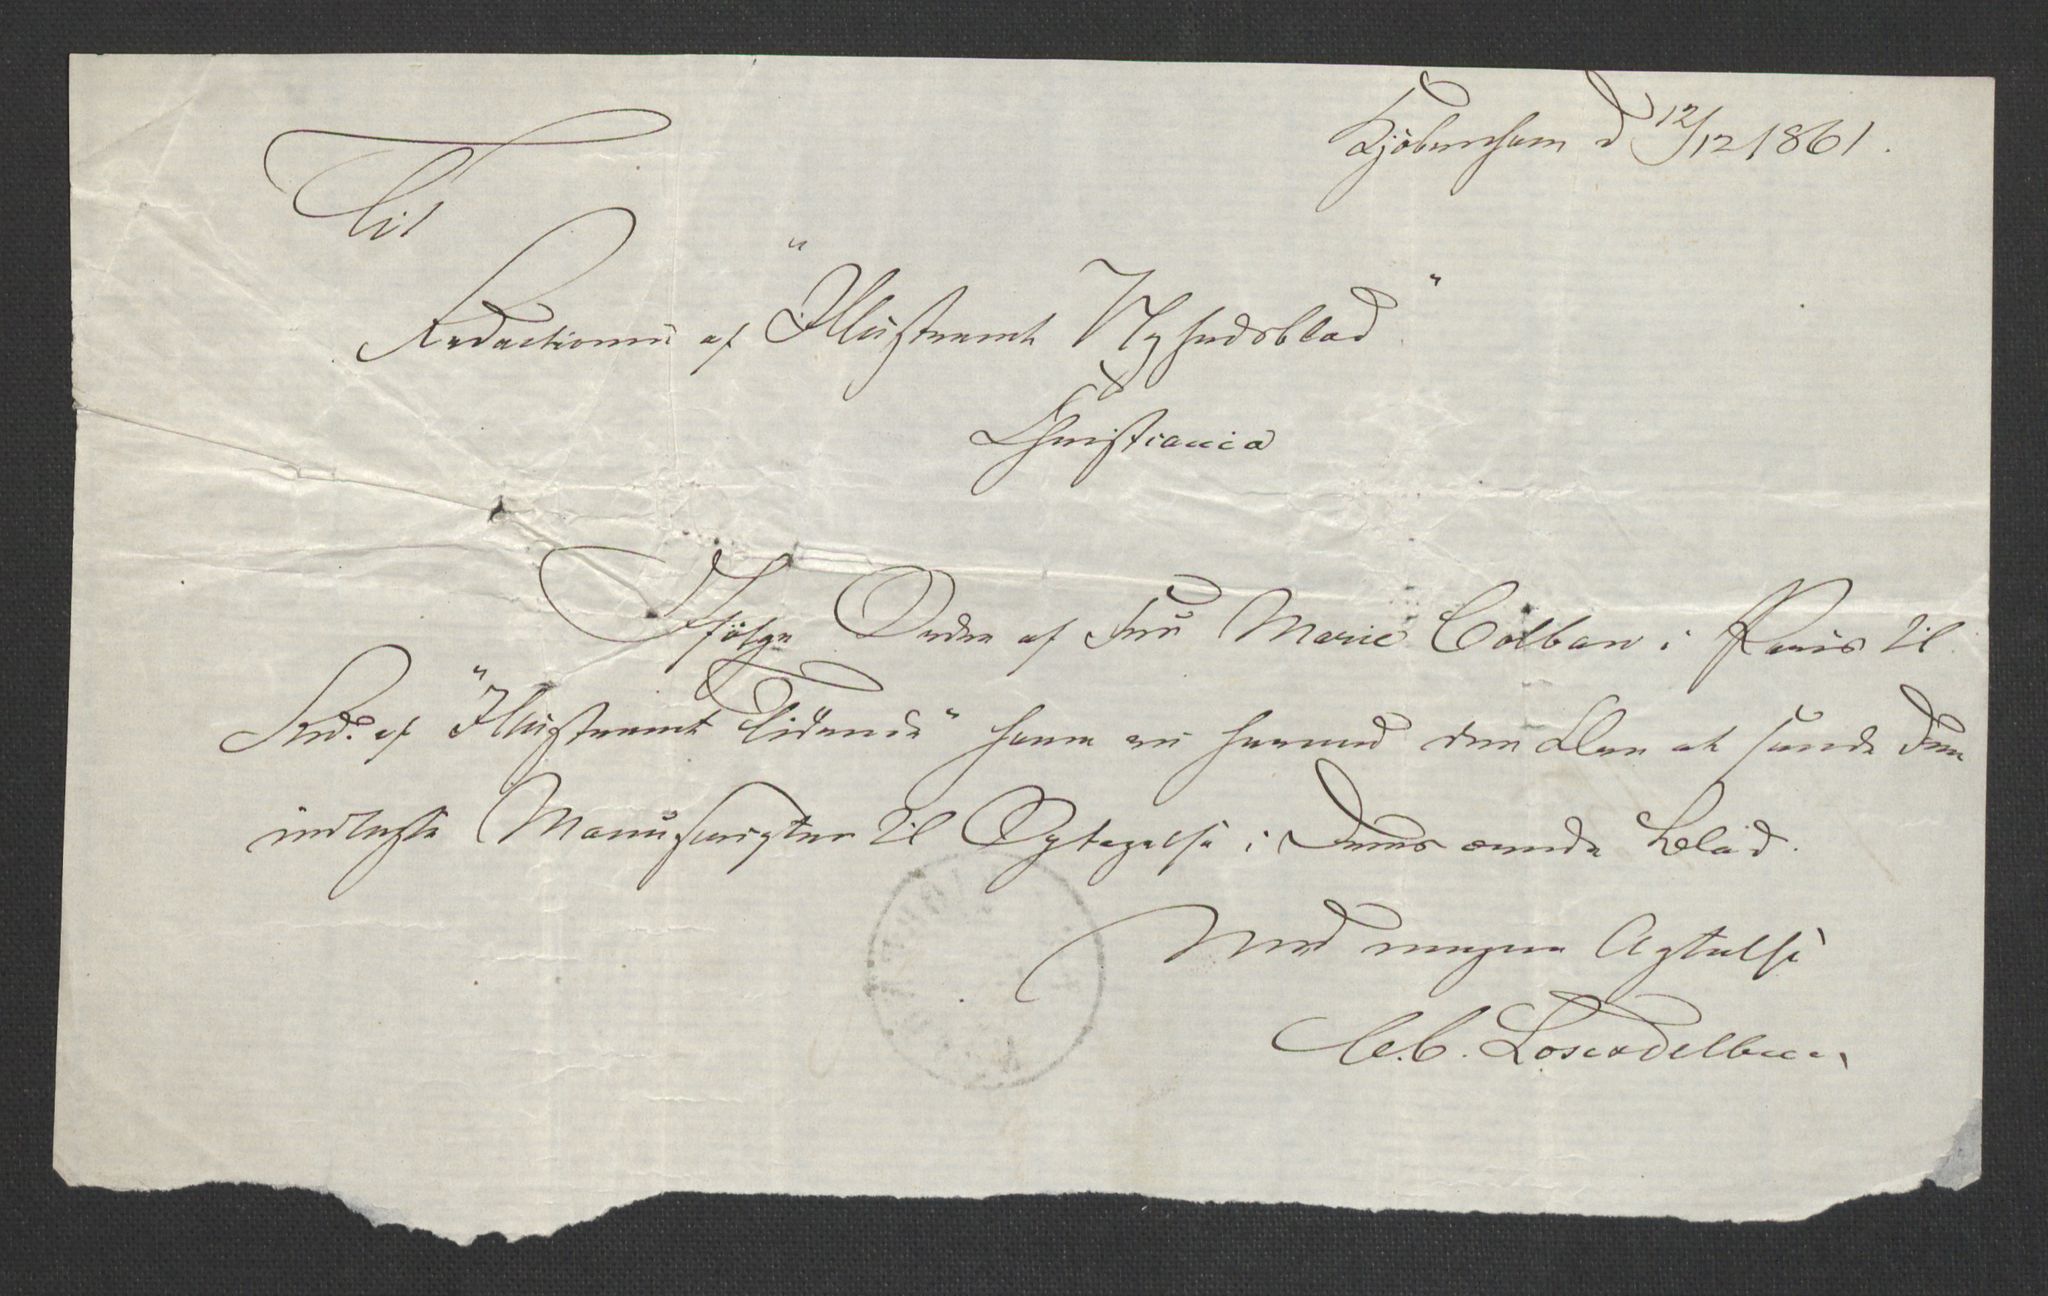 Kjöbenhavn d 12/12 1861.
Til
Redactionen af "Illustreret Nyhedsblad"
Christiania
Ifölge Ordre af Fru Marie Colban i Paris til
Red. af "Illustreret Tidende" have vi herved den Ære at sende Dem
indlagte Manuscripter til Optagelse i Deres ærede Blad.
Med megen Agtelse
C. C.